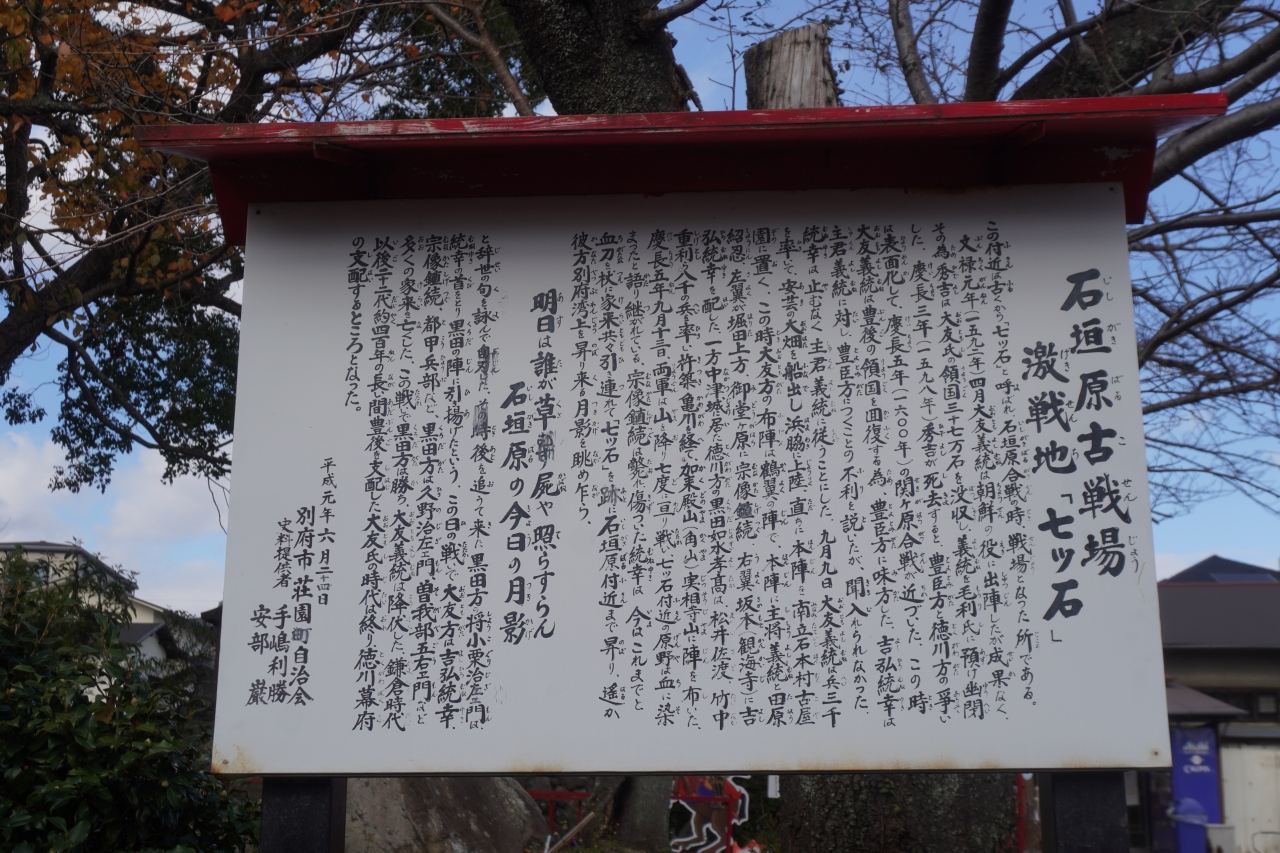 石垣原古戦場
激戦地「七ッ石」
この付近は古くから「七ッ石」と呼ばれ石垣原合戦の時、戦場となった所である。
文禄元年(一五九二年)四月大友義統は朝鮮の役に出陣したが成果なく、
その為秀吉は大友氏の領国三十七万石を没収し義統を毛利氏に預け幽閉
した。慶長三年(一五九八年)秀吉が死去すると、豊臣方と徳川方の爭い
は表面化して、慶長五年(一六〇〇年)の関ヶ原合戦が近づいた。この時
大友義統は豊後の領国を回復する為、豊臣方に味方した。吉弘統幸は
主君義統に対し、豊臣方につくことの不利を説いたが、聞き入れられなかった。
統幸は止むなく主君義統に従うことにした。九月九日大友義統は兵三千
を率いて、安芸の大畑を船出し浜脇に上陸、直に本陣を南立石本村古屋
園に置く、この時大友方の布陣は鶴翼の陣で、本陣に主将義統と田原
紹忍、左翼が堀田上方、御堂ヶ原に宗像鎮続、右翼坂本(観海寺)に吉
弘統幸を配した。一方中津城に居た徳川方の黒田如水孝高は松井佐渡、竹中
重利ら八千の兵を率い、杵築、亀川を経て、加来殿山(角山)実相寺山に陣を布いた、
慶長五年九月十三日、両軍は山を降り七度に亘り戦い、七ッ石付近の原野は血に染
まったと語り継がれている。宗像鎮続は撃れ、傷つった統幸は、今はこれまでと
血刀を杖に家来共々を引き連れて「七ッ石」を跡に石垣原付近まで昇り、遙か
彼方別府湾上を昇り来る月影を眺め乍ら、
明日は誰が草の屍や照らすらん
石垣原の今日の月影
と辞世の句を詠んで自刃した。時後を追って来た黒田方の将小栗治左ヱ門は、
統幸の首をとり黒田の陣に引き揚げたという。この日の戦いで大友方は吉弘統幸、
宗像鎮続、都甲兵部など、黒田方は久野治左ヱ門、曽我部五右ヱ門など
多くの家来を亡くした。この戦いで黒田方は勝ち、大友義統は降伏した。鎌倉時代
以後二十二代約四百年の長い間豊後を支配した大友氏の時代は終り、徳川幕府
の支配するところとなった。
平成元年六月二十四日
別府市荘園町自治会
史料提供者 手嶋利勝
安部 巌
Asahi